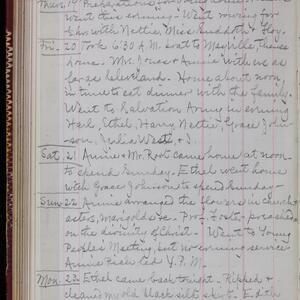 Thurs. 19 Preparations for going home.
went this evening - Went rowing for
hrs with Nettie, Miss Sudduth & Flor.
Fri. 20 Took 6:30 A.M. boat to Mayville, thence
home. Mrs. Jones & Annie with us as
far as Cleveland. Home about noon,
in time to eat dinner with the family.
Went to Salvation Army in evening
Harl, Ethel, Harry, Nettie, Grace John-
son, Julia West, & I.
Sat. 21 Annie & Mr. Root came home at noon
to spend Sunday. Ethel went home
with Grace Johnson to spend Sunday.
Sun. 22 Annie arranged the flowers in church
asters, marigolds &c. Prof. preached
on the divinity of Christ. Went to Young
People's Meeting, but no evening service.
Annie Fish led Y.P.M.
Mon. 23 Ethel came back tonight. Ripped &
cleaned my old black silk skirt. Edith